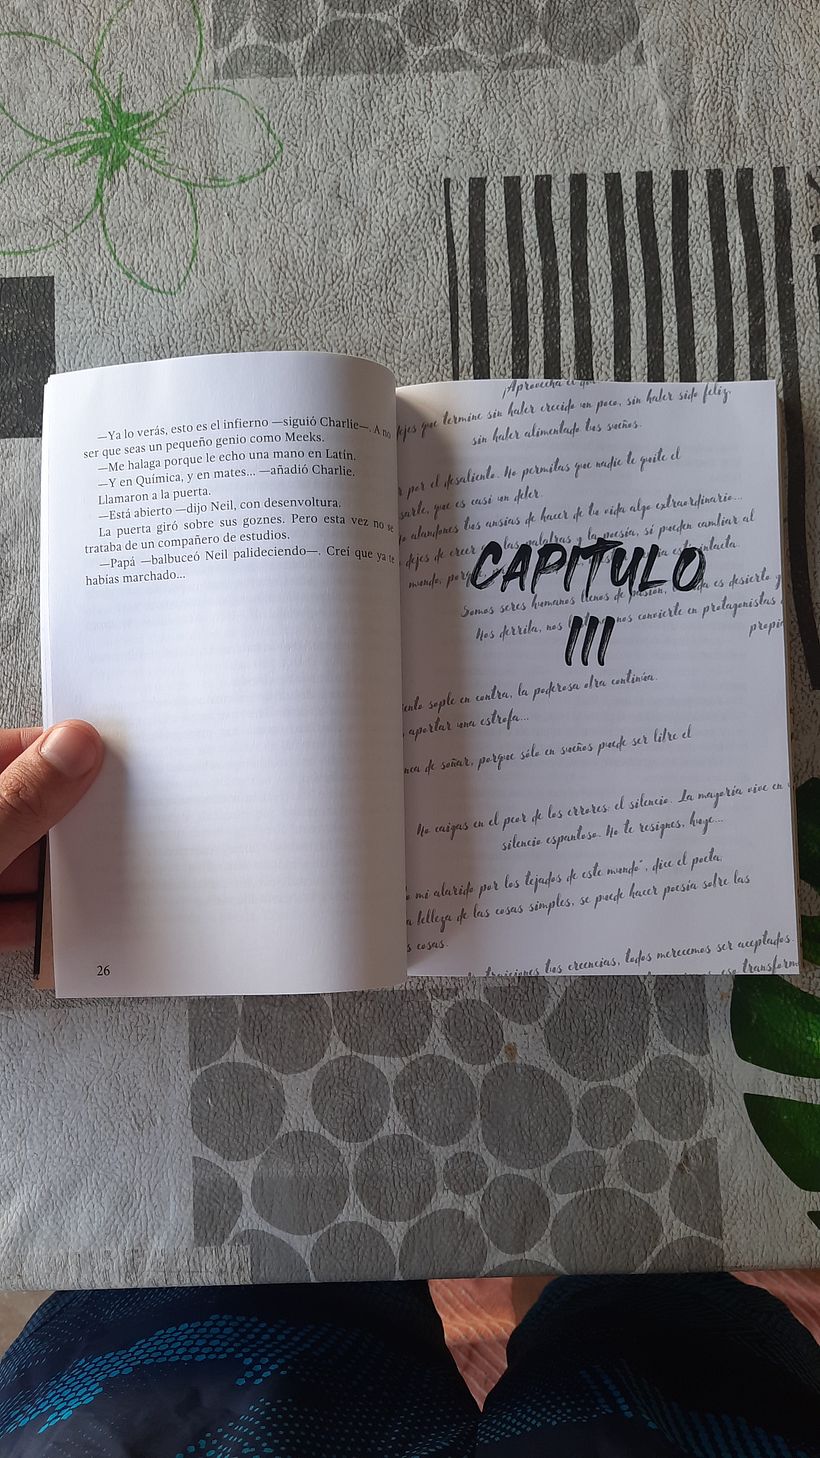 —Ya lo verás, esto es el infierno —siguió Charlie—. A no
ser que seas un pequeño genio como Meeks.
—Me halaga porque le echo una mano en Latín.
—Y en Química, y en mates... —añadió Charlie.
Llamaron a la puerta.
—Está abierto —dijo Neil, con desenvoltura.
La puerta giró sobre sus goznes. Pero esta vez no se
trataba de un compañero de estudios.
—Papá —balbuceó Neil palideciendo—. Creí que ya te
habías marchado...
26
¡Aprovecha el
dejes que termine sin haber crecido un poco, sin haber sido feliz,
sin haber alimentado tus sueños.
por el desaliento. No permitas que nadie te quite el
que es casi un deber.
abandones tus ansias de hacer de tu vida algo extraordinario...
dejes de creer las palabras y la poesía, sí pueden cambiar al
mundo, está intacta.
CAPITULO
III
Somos seres humanos llenos de pasión, es desierto y
Nos derriba, nos nos convierte en protagonistas
sople en contra, la poderosa obra continúa.
aportar una estrofa...
de soñar, porque sólo en sueños puede ser libre el
No caigas en el peor de los errores: el silencio. La mayoría vive en
silencio espantoso. No te resignes, huye...
mi alarido por los tejados de este mundo", dice el poeta;
belleza de las cosas simples, se puede hacer poesía sobre las
cosas.
traiciones tus creencias, todos merecemos ser aceptados.
eso transforma